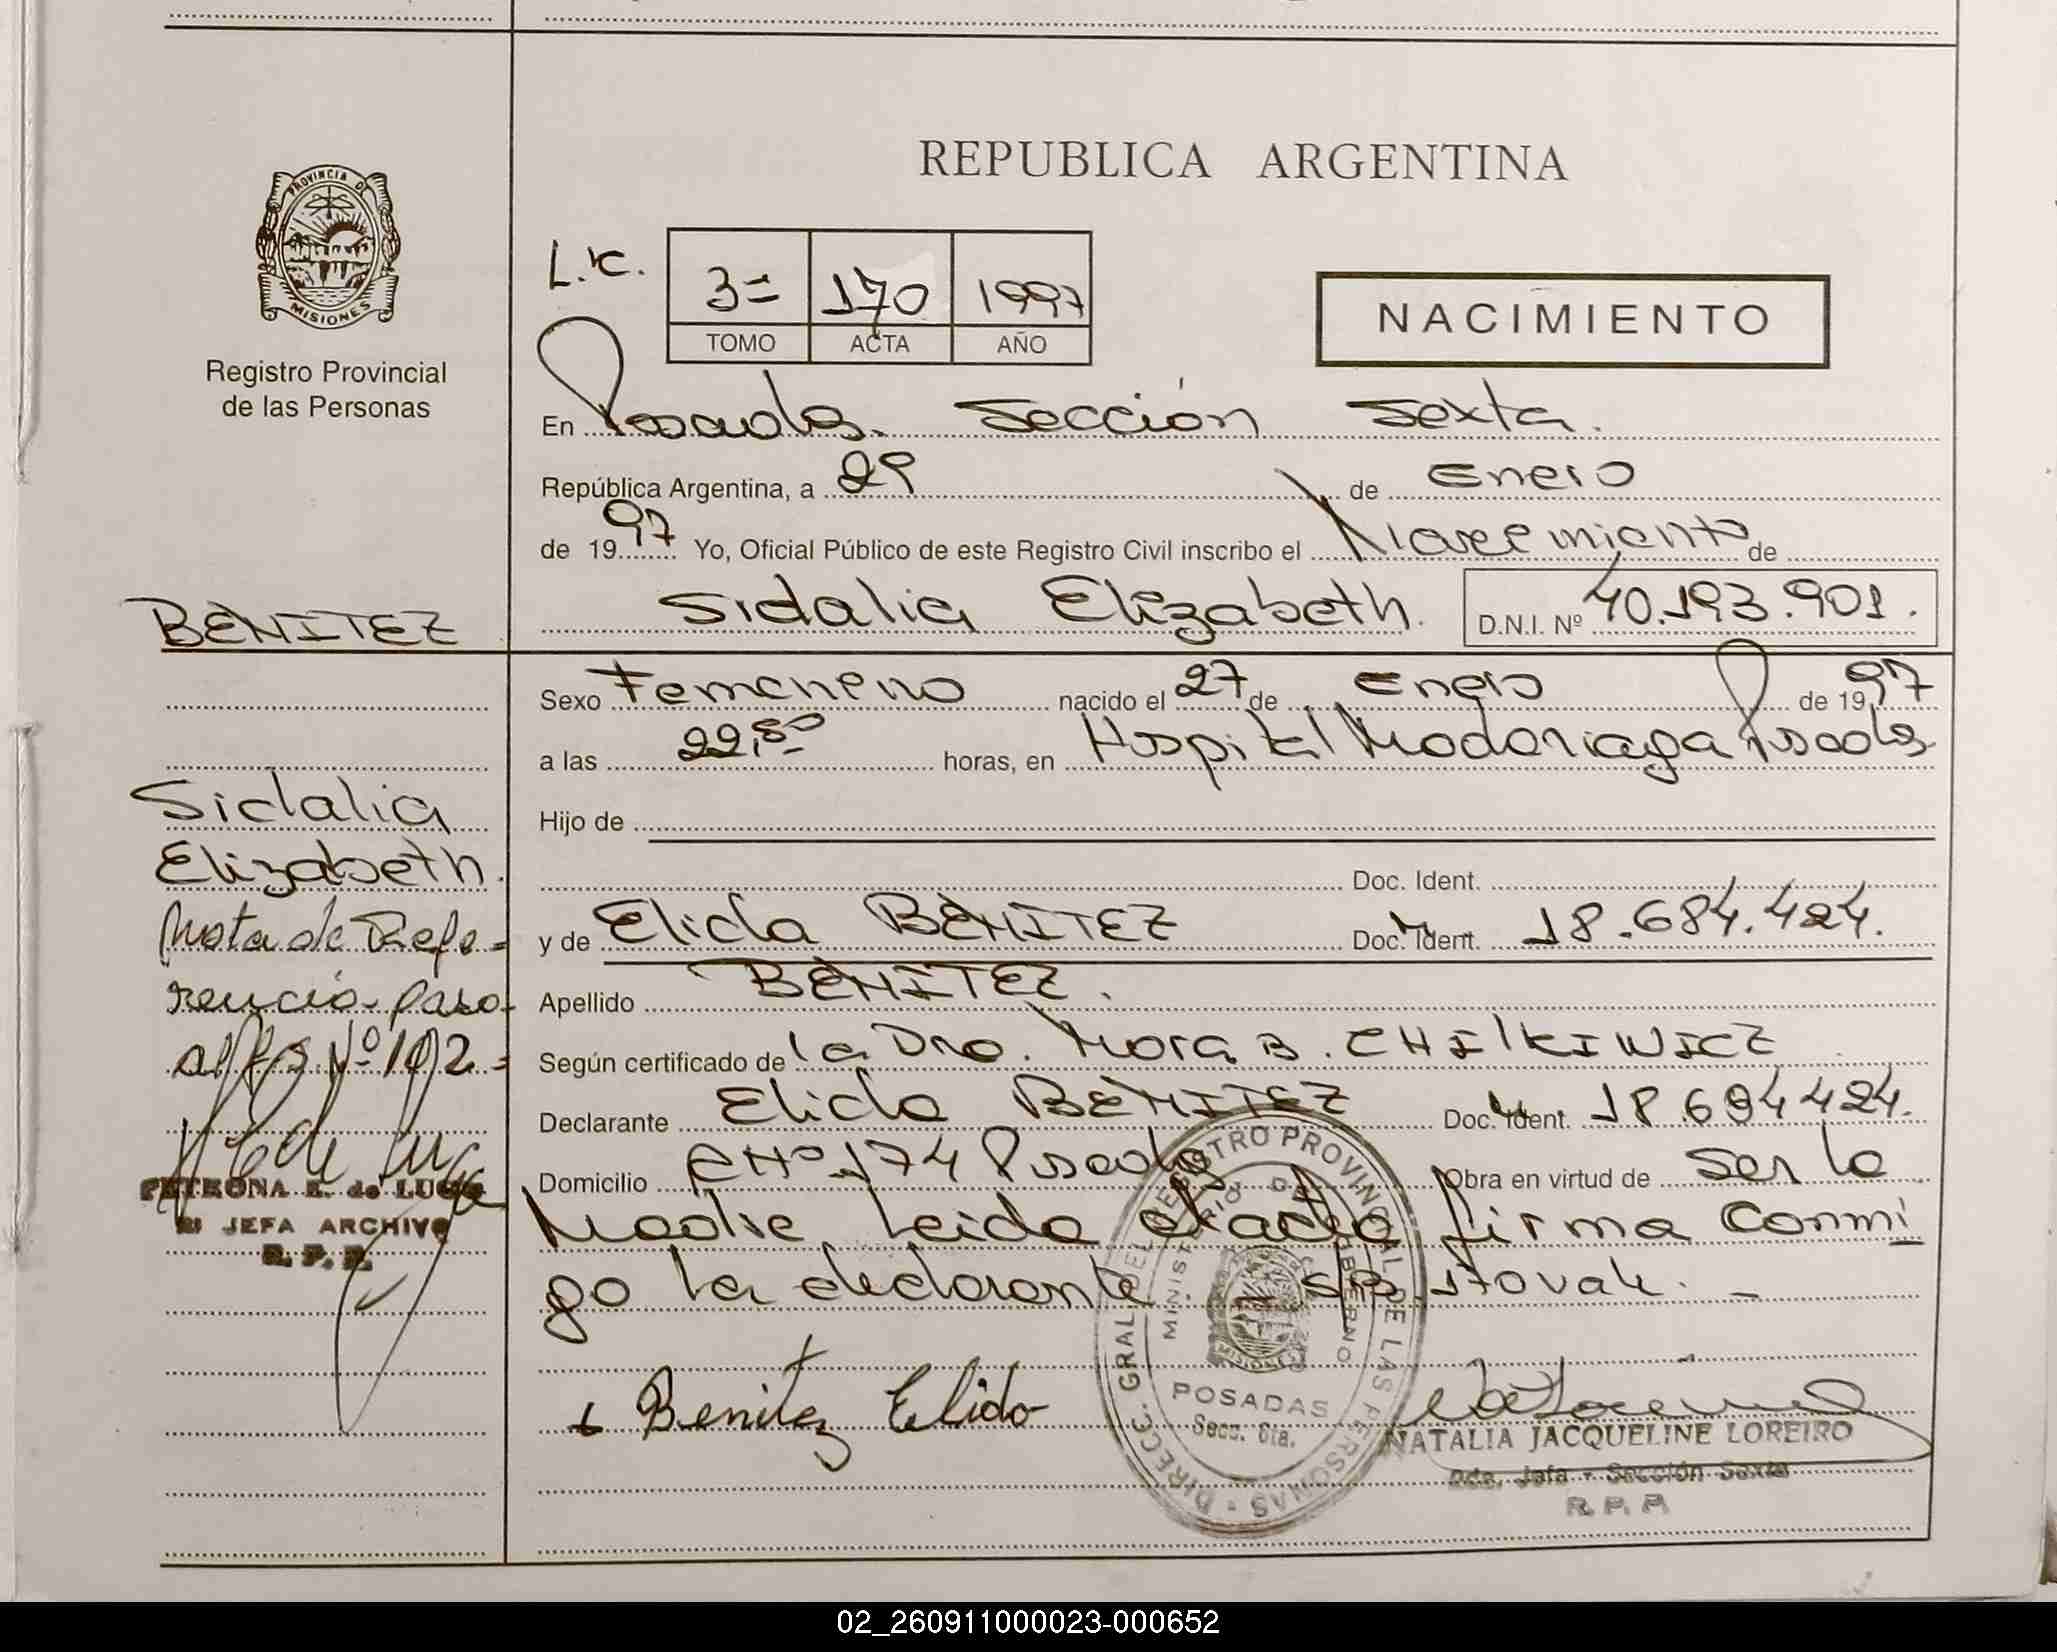 REPUBLICA ARGENTINA
PROVINCIA D
MISIONES
Registro Provincial
de las Personas
L.C.
3= 170 1997
TOMO ACTA AÑO
NACIMIENTO
En Posadas. Sección Sexta.
República Argentina, a 29 de Enero
de 1997 Yo, Oficial Público de este Registro Civil inscribo el Nacimiento de
Sidalia Elizabeth. D.N.I. Nº 40.193.901.
BENITEZ
Sexo Femenino nacido el 27 de Enero de 1997
a las 22,50 horas, en Hospital Madariaga Posadas
Hijo de
Doc. Ident.
y de Elida BENITEZ Doc. Ident. 18.684.424.
Apellido BENITEZ.
Según certificado de la Dra. Mora B. CHILKIWICZ
Declarante Elida BENITEZ Doc. Ident. 18.684424.
Domicilio CHº 174 Posadas Obra en virtud de ser la
Madre Leida el acta firma Conmi
go la declarante. - S/R 170 vale. -
+ Benitez Elida
Sidalia
Elizabeth.
Nota de Refe=
rencia paso
al Fº Nº 102=
PETRONA E. de LUGO
JEFA ARCHIVO
R. P. P.
DIRECC. GRAL. DEL REGISTRO PROVINCIAL DE LAS PERSONAS
MINISTERIO DE GOBIERNO
MISIONES
POSADAS
Secc. 6ta.
NATALIA JACQUELINE LOREIRO
Jefa - Sección Sexta
R. P. P.
02_260911000023-000652